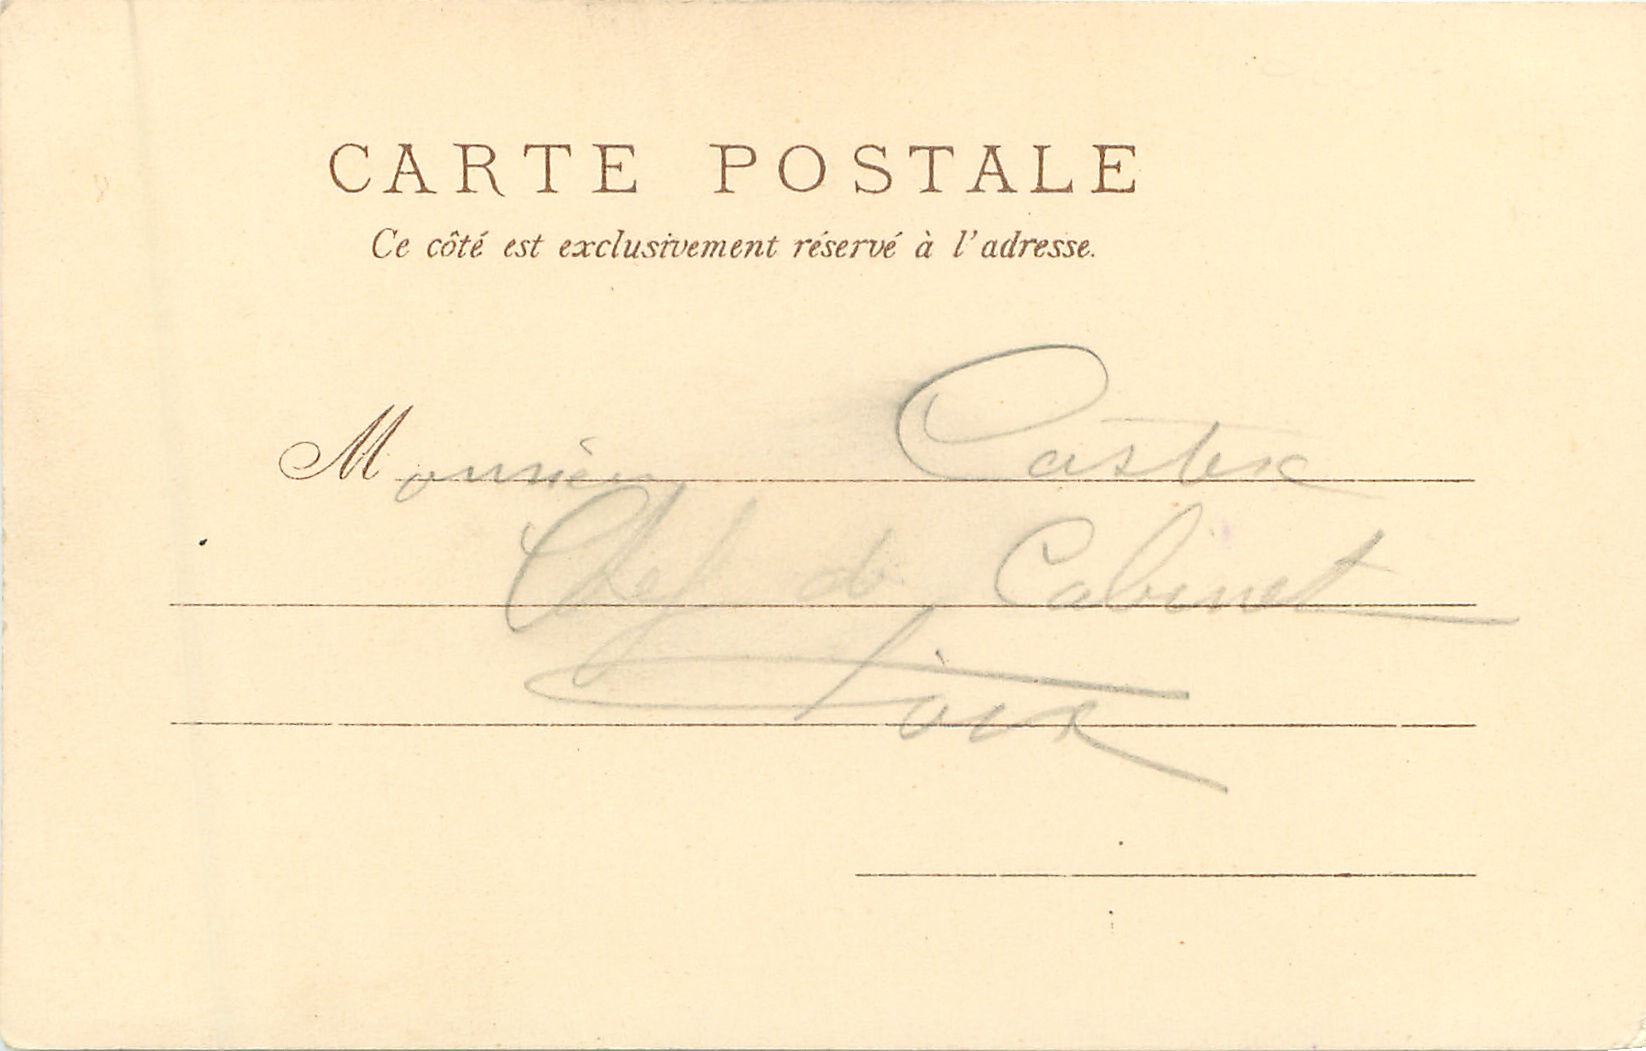 CARTE POSTALE
Ce côté est exclusivement réservé à l'adresse.
Monsieur Castex
Chef de Cabinet
Foix